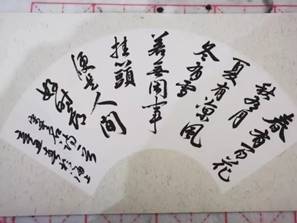 春有百花
秋有月
夏有涼風
冬有雪
若無閑事
挂心頭
便是人间
好时节